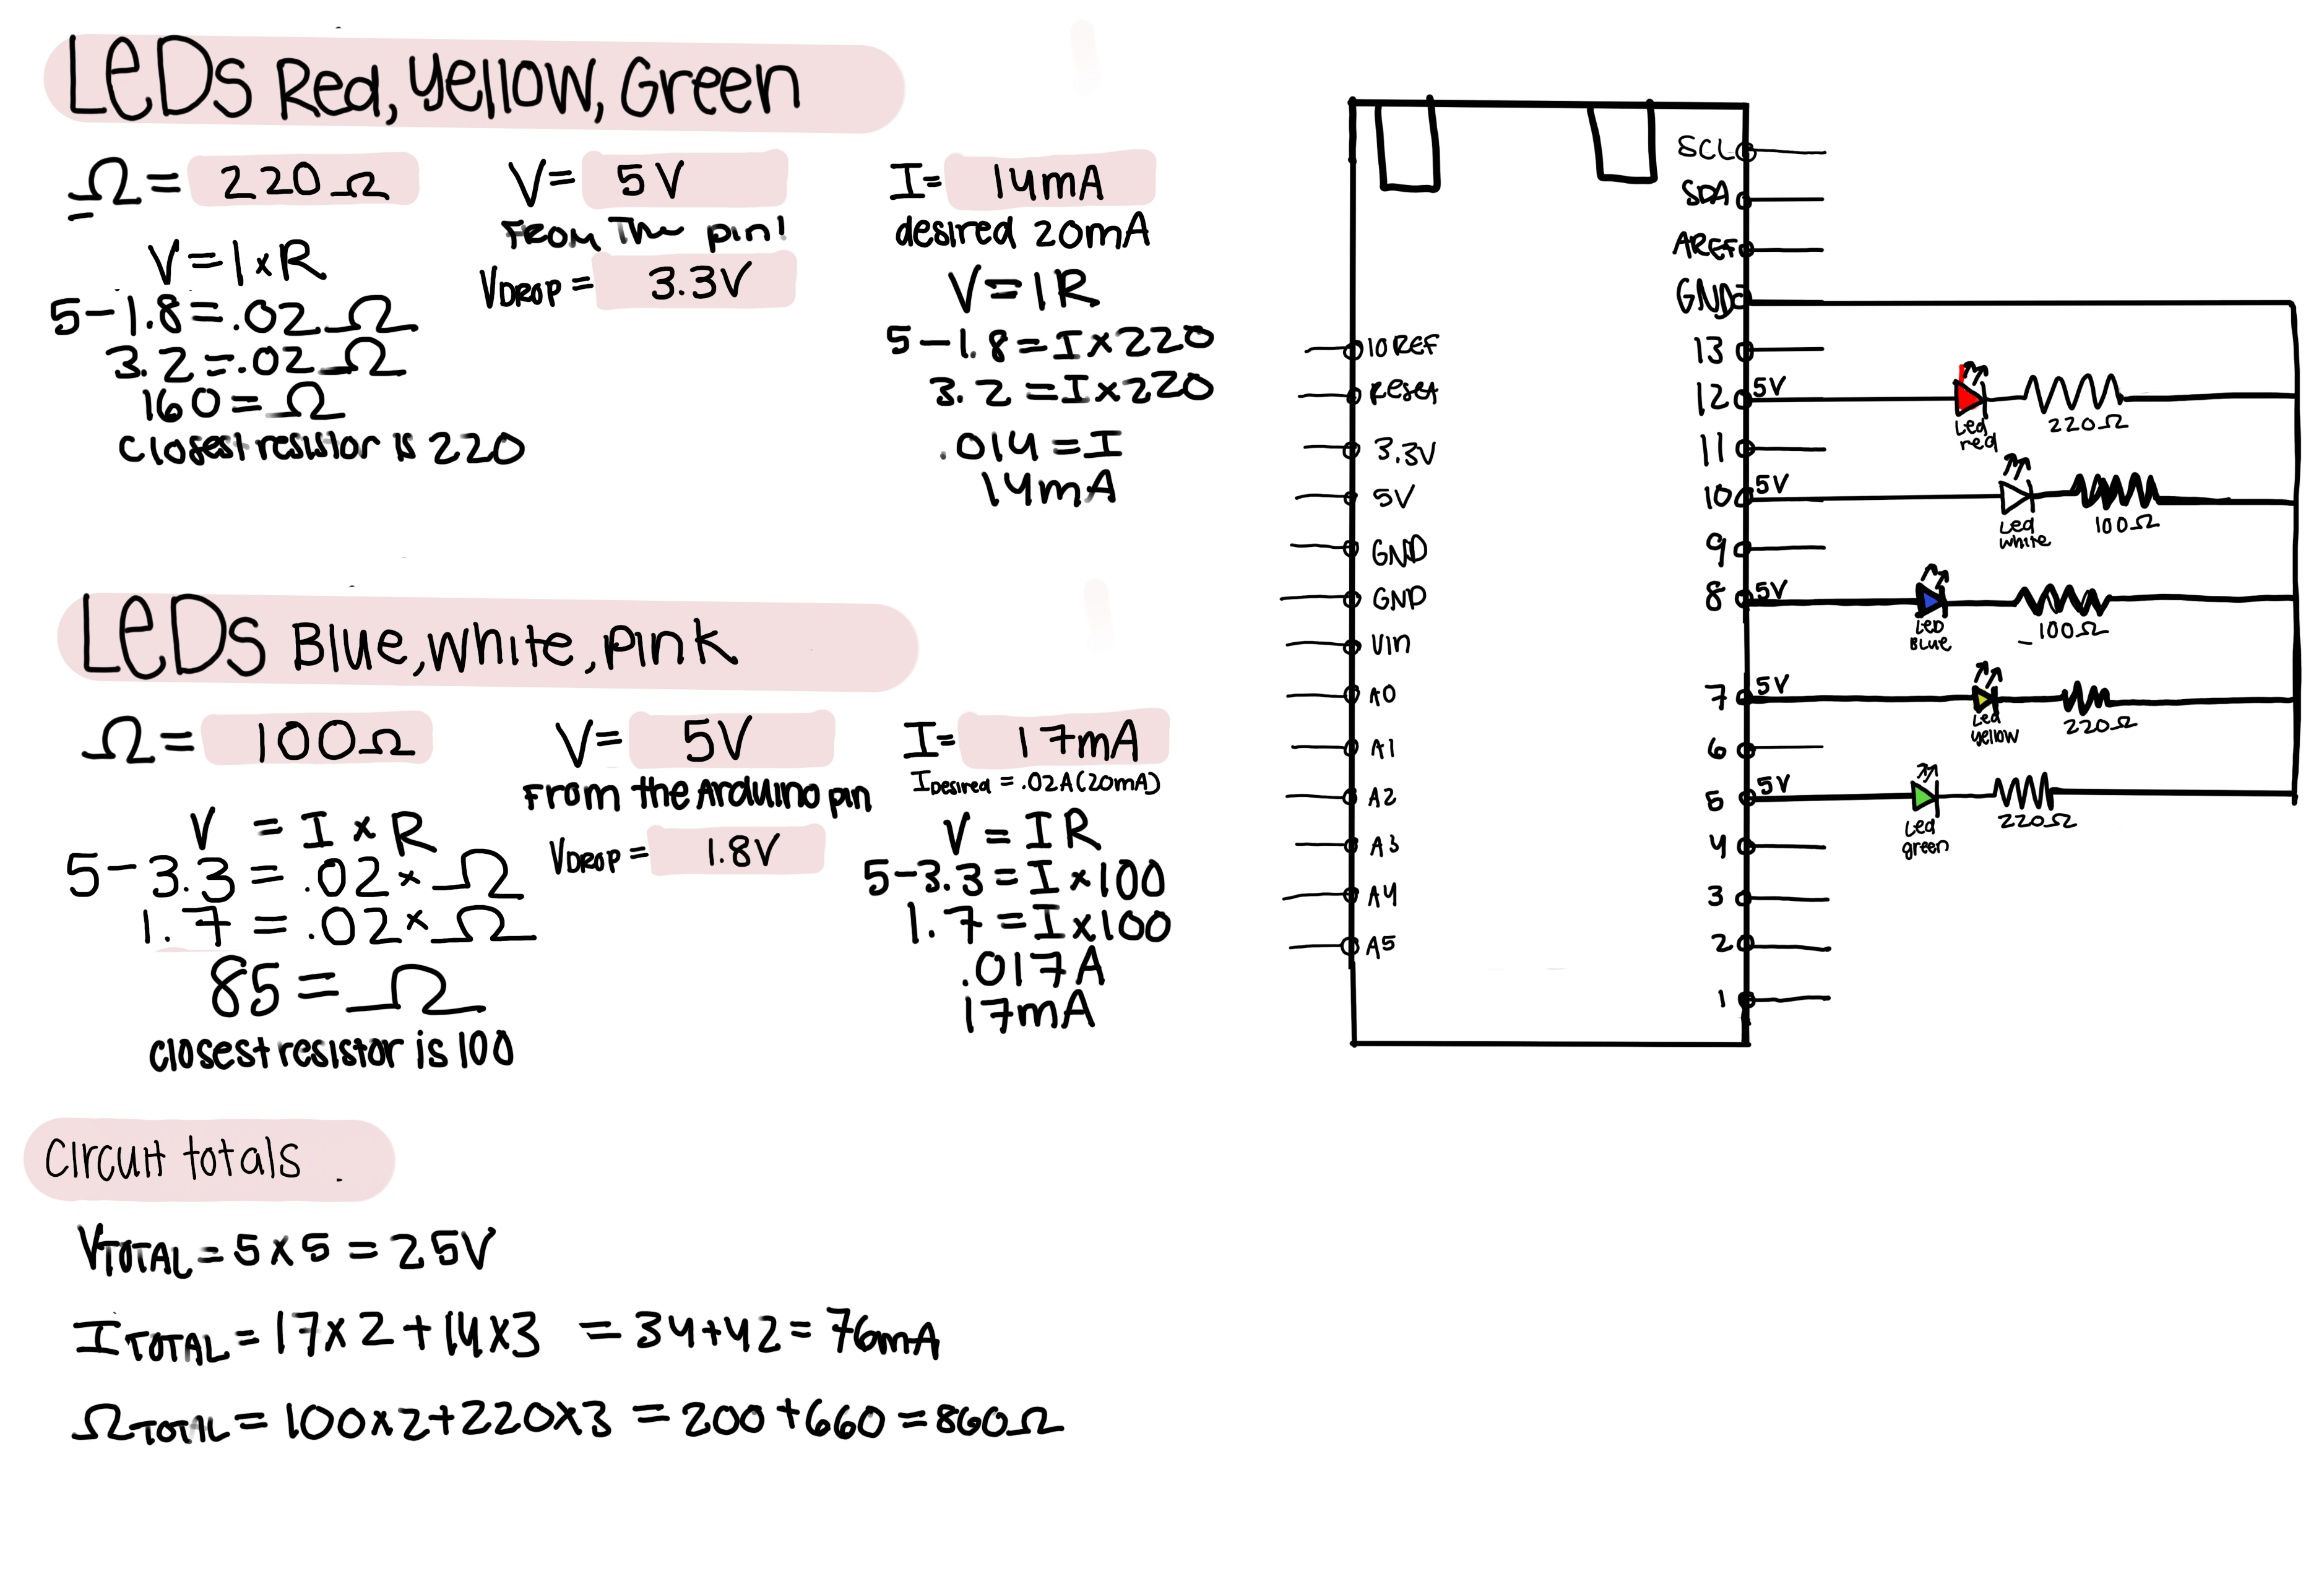 LEDs Red, Yellow, Green
Ω = 220Ω
V = I x R
5 - 1.8 = .02 Ω
3.2 = .02 Ω
160 = Ω
closest resistor is 220
V = 5V
From The pin!
VDROP = 3.3V
I = 14mA
desired 20mA
V = IR
5 - 1.8 = I x 220
3.2 = I x 220
.014 = I
14mA
LEDs Blue, White, Pink
Ω = 100Ω
V = I x R
5 - 3.3 = .02 x Ω
1.7 = .02 x Ω
85 = Ω
closest resistor is 100
V = 5V
From the Arduino pin
VDROP = 1.8V
I = 17mA
IDesired = .02A (20mA)
V = IR
5 - 3.3 = I x 100
1.7 = I x 100
.017A
17mA
Circuit totals
VTOTAL = 5 x 5 = 25V
ITOTAL = 17 x 2 + 14 x 3 = 34 + 42 = 76mA
ΩTOTAL = 100 x 2 + 220 x 3 = 200 + 660 = 860Ω
IOREF
Reset
3.3V
5V
GND
GND
Vin
A0
A1
A2
A3
A4
A5
SCL
SDA
AREF
GND
13
12 5V
Led red
220Ω
11
10 5V
Led white
100Ω
9
8 5V
LED BLUE
100Ω
7 5V
Led yellow
220Ω
6
5 5V
Led green
220Ω
4
3
2
1